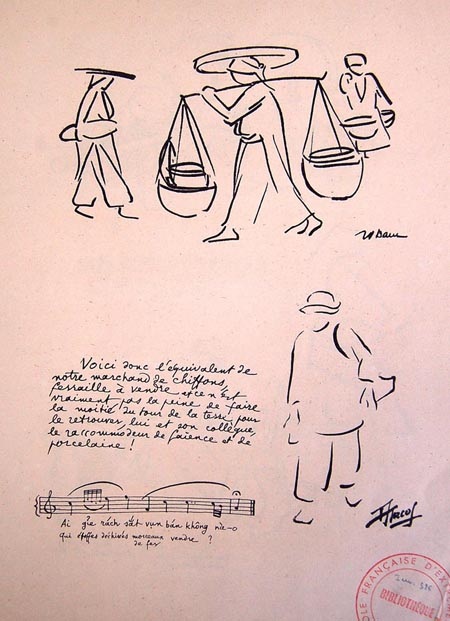 Voici donc l'équivalent de
notre marchand de chiffons,
ferraille à vendre et ce n'est
vraiment pas la peine de faire
la moitié du tour de la terre pour
le retrouver lui et son collègue,
le raccommodeur de faience et de
porcelaine !
Ai giẻ rách sắt vụn bán không nào-o
Qui étoffes déchirées morceaux vendre ?
de fer
FRANÇAISE D'EX
BIBLIOTHÈQUE